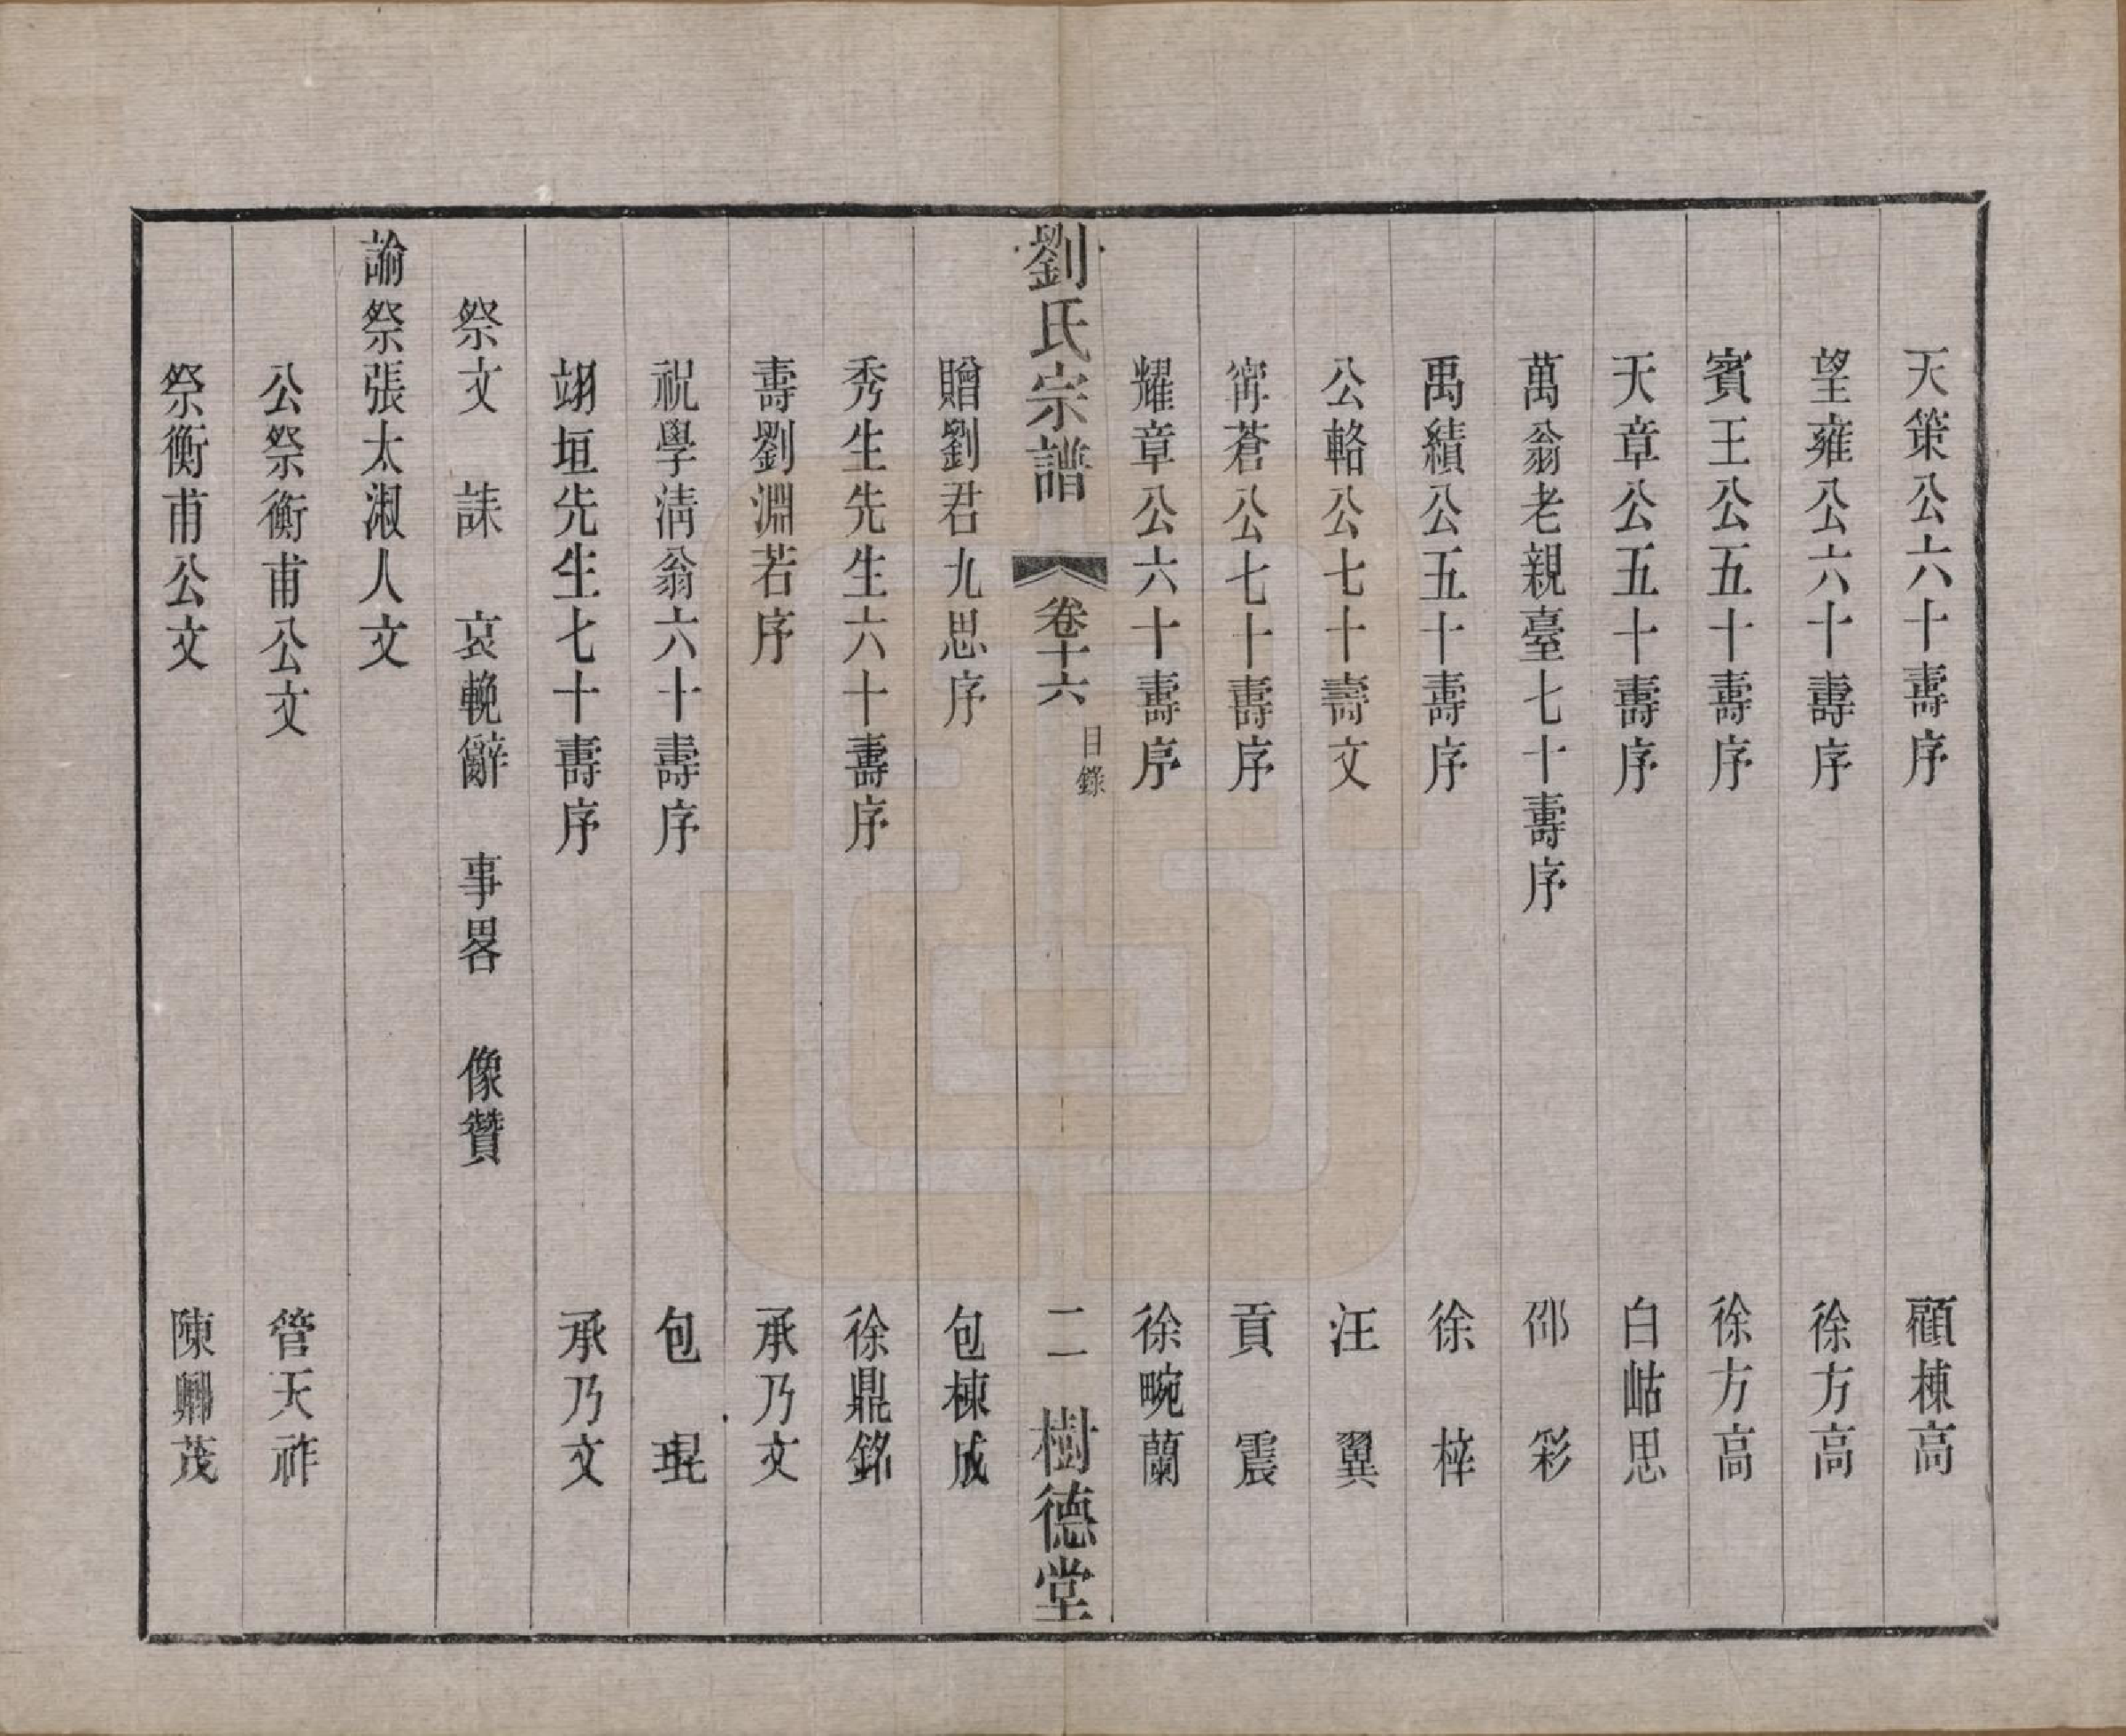 天策公六十壽序 顧棟高
望雍公六十壽序 徐方高
賓王公五十壽序 徐方高
天章公五十壽序 白岵思
萬翁老親臺七十壽序 邵彩
禹績公五十壽序 徐梓
公輅公七十壽文 汪翼
寗蒼公七十壽序 貢震
耀章公六十壽序 徐畹蘭
劉氏宗譜 卷十六 目錄 二 樹德堂
贈劉君九思序 包棟成
秀生先生六十壽序 徐鼎銘
壽劉淵若序 承乃文
祝學淸翁六十壽序 包琨
翊垣先生七十壽序 承乃文
祭文 誄 哀輓辭 事畧 像贊
諭祭張太淑人文
公祭衡甫公文 管天祚
祭衡甫公文 陳卿茂